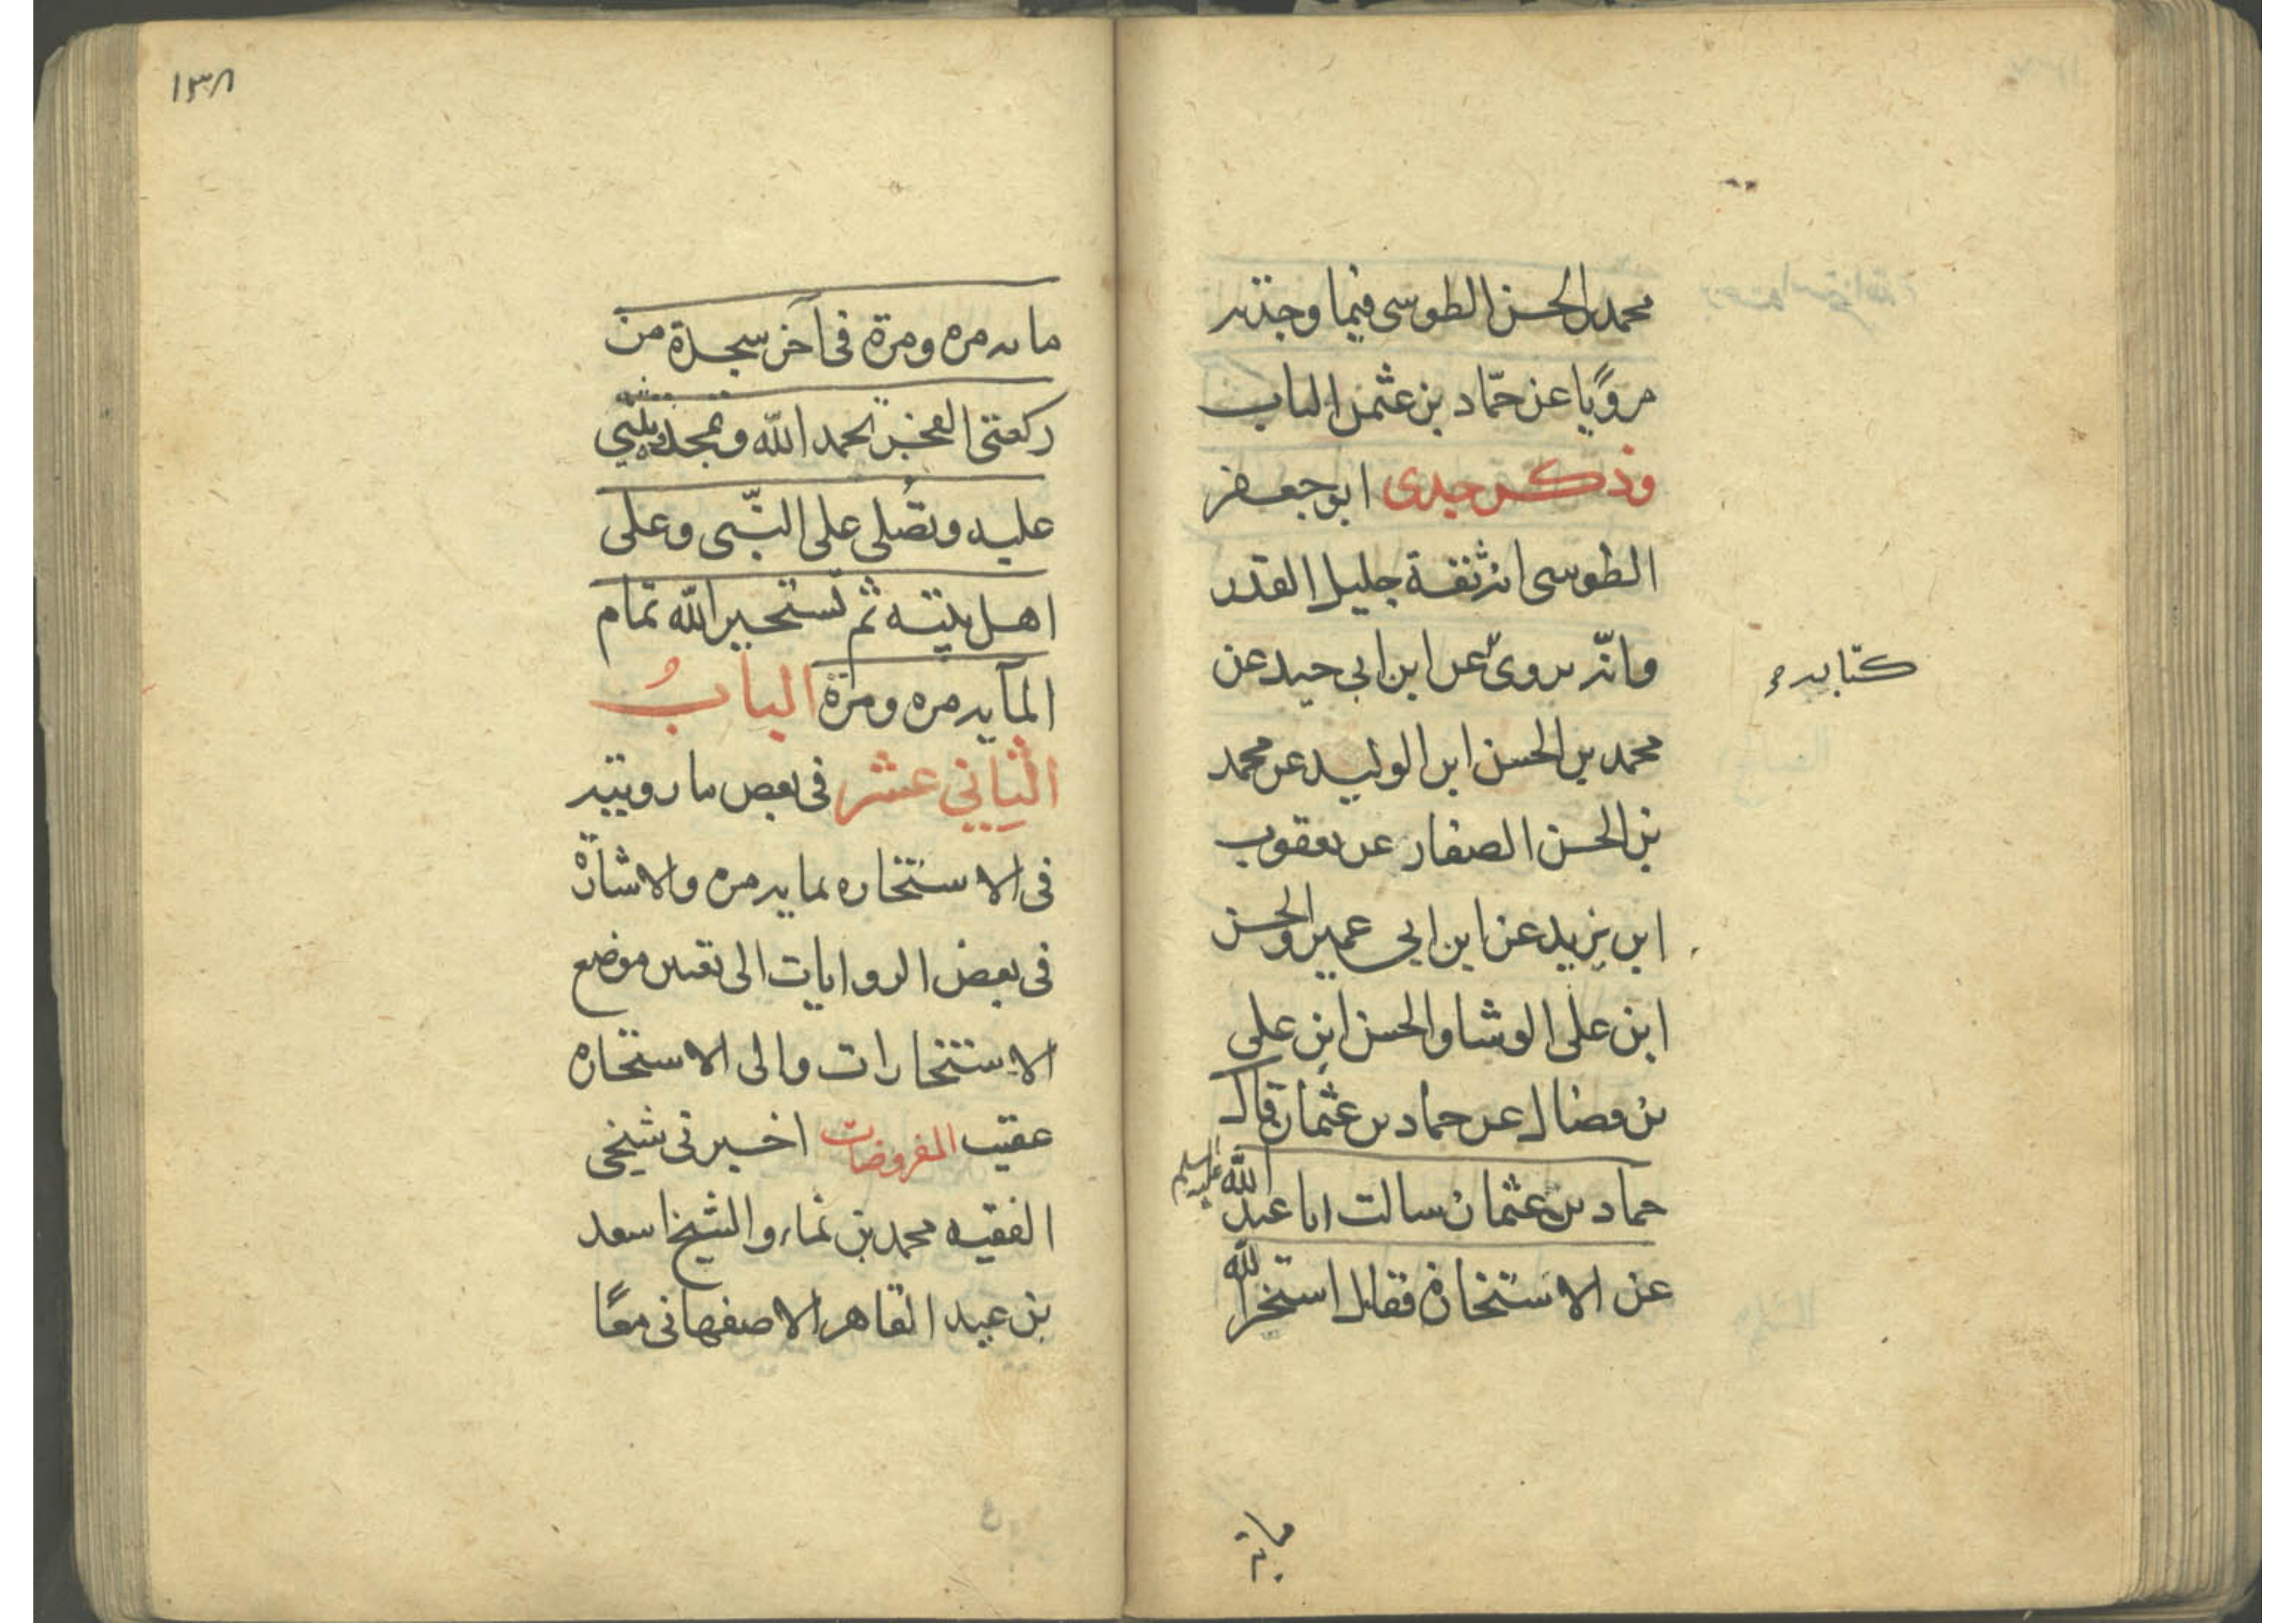 محمد بن الحسن الطوسى فيما وجدته
مرويا عن حمّاد بن عثمن الناب
وذكر جدى ابو جعفر
الطوسى انه ثقة جليل القدر
وانّه يروى عن ابن ابى جيد عن
كتابه
محمد بن الحسن ابن الوليد عن محمد
بن الحسن الصفار عن يعقوب
ابن يزيد عن ابن ابى عمير والحسن
ابن على الوشا والحسن ابن على
بن فضال عن حماد بن عثمان قال
حماد بن عثمان سالت ابا عبد الله عليه السلم
عن الاستخارة فقال استخر الله
مائة
١٣٨
مائه مره ومرة فى آخر سجدة من
ركعتى الفجر تحمد الله وتمجده وتثنى
عليه وتُصلى على النبّى وعلى
اهل بيته ثم تستخير الله تمام
المآيه مره ومرة البابُ
الثانى عشر فى بعض ما رويته
فى الاستخاره بمايه مره والاشارة
فى بعض الروايات الى تعيين موضع
الاستخارات والى الاستخاره
عقيب المفروضات اخبرنى شيخى
الفقيه محمد بن نماء والشيخ اسعد
بن عبد القاهر الاصفهانى معًا